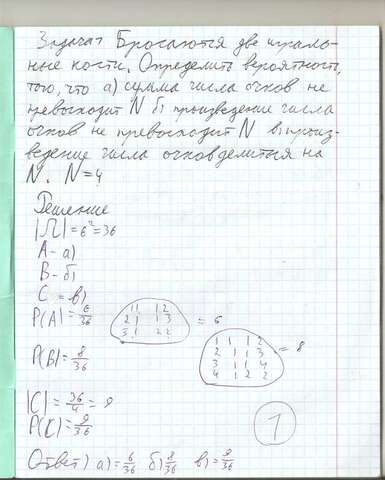 Задача 1 Бросаются две играль-
ные кости. Определить вероятность
того, что а) сумма числа очков не
превосходит N б) произведение числа
очков не превосходит N в) произ-
ведение числа очков делиться на
N. N=4
Решение
|Ω|=6²=36
A - а)
B - б)
C = в)
P(A)=6/36
11 12
21 13
31 22
= 6
P(B)=8/36
11 12
21 13
31 14
41 22
= 8
|C|=36/4=9
P(C)=9/36
1
Ответ) а)=6/36 б) 8/36 в)=9/36